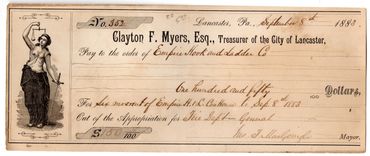 No. 353 Lancaster, Pa., September 8th 1883
Clayton F. Myers, Esq., Treasurer of the City of Lancaster,
Pay to the order of Empire Hook and Ladder Co
One hundred and fifty 00/100 Dollars,
For Six months of Empire H. & L. Co. to Sep 8th 1883
Out of the Appropriation for Fire Dept General
$ 150 /100 Mayor.